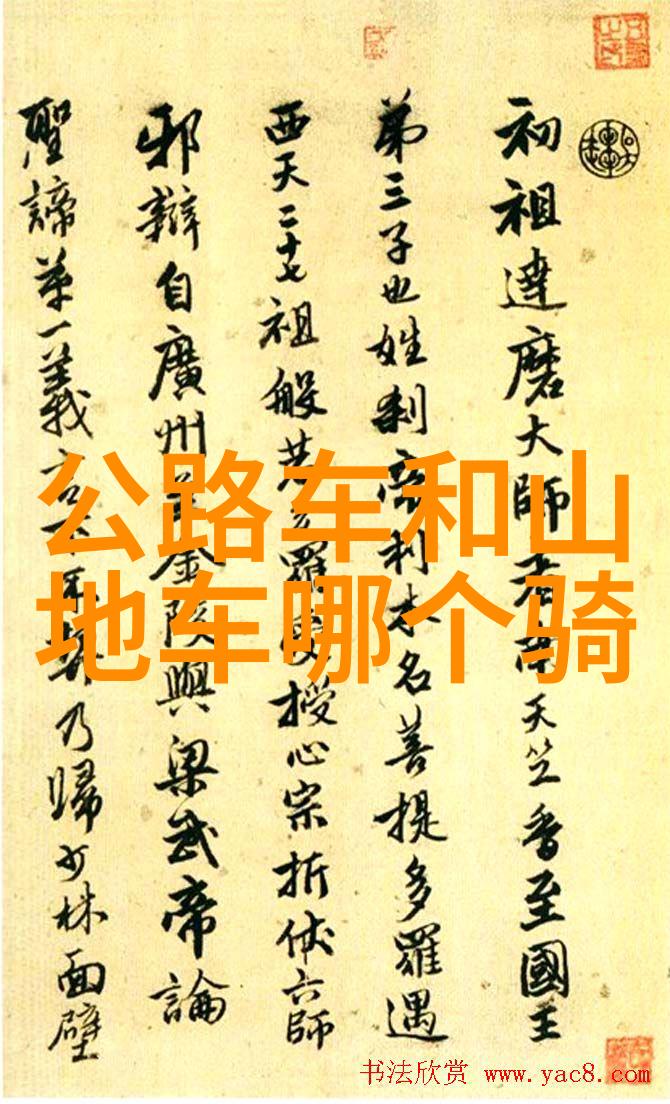 初祖達磨大師者南天竺香至國王
第三子也姓刹帝利本名菩提多羅遇
西天二十七祖般若多羅受授心宗折伏六師
邪辯自廣州 金陵與梁武帝論
聖諦第一義言不 乃歸少林面壁
公路车和山
地车哪个骑
书法欣赏 www.yac8.com